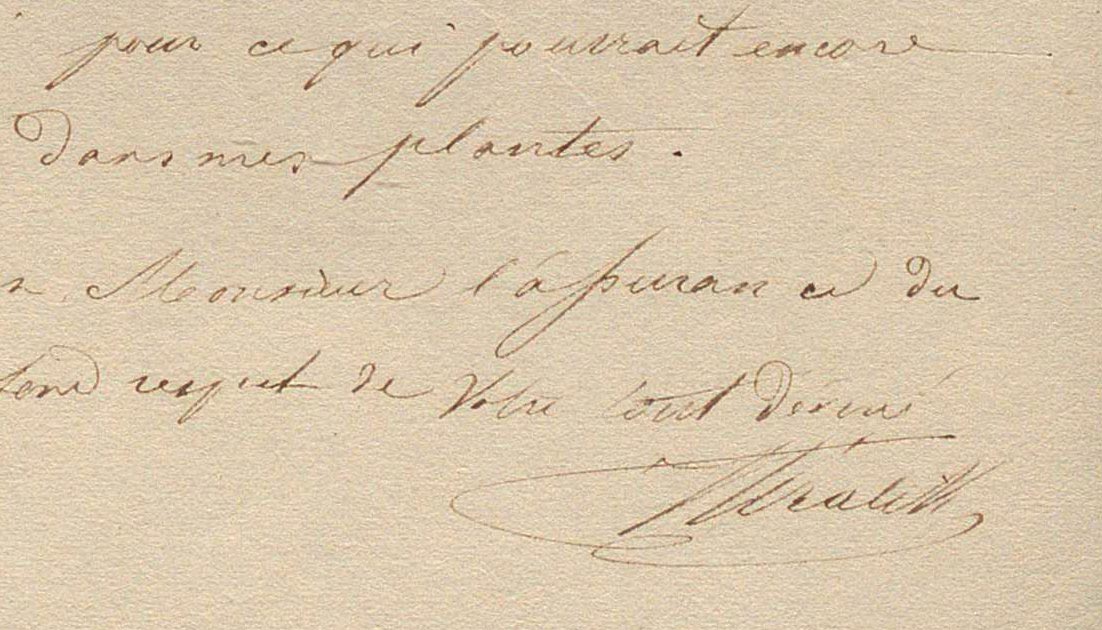 pour ce qui pourrait encore
dans mes plantes.
Monsieur l'assurance du
fond respect de Votre tout devoué